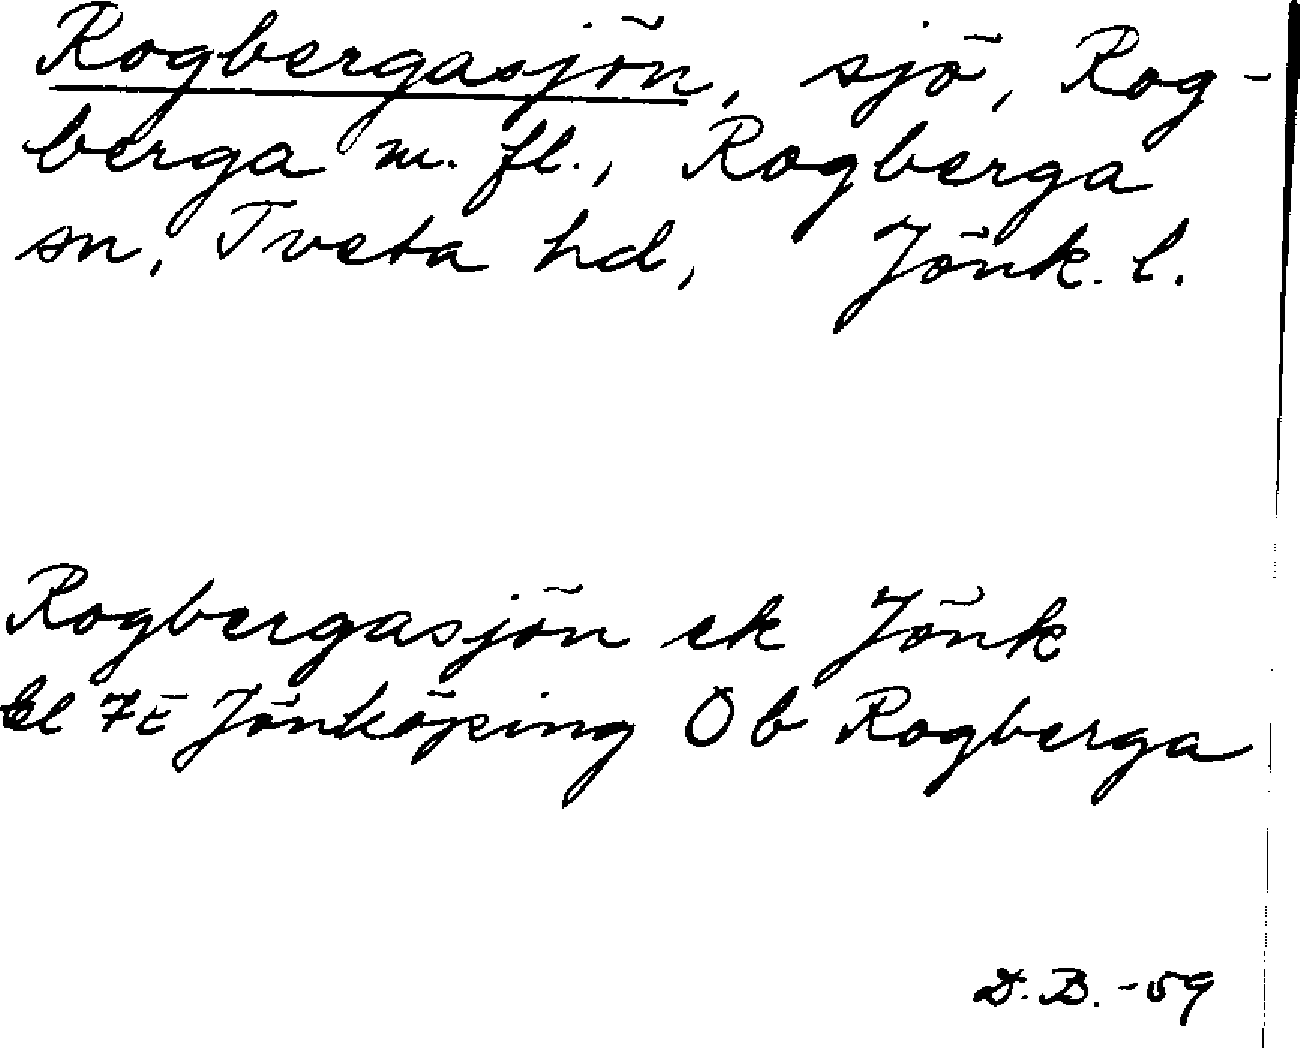 Rogbergasjön, sjö, Rog-
berga m. fl., Rogberga
sn, Tveta hd, Jönk. l.
Rogbergasjön ek Jönk
bl 7E Jönköping Ö b Rogberga
D. B. -59